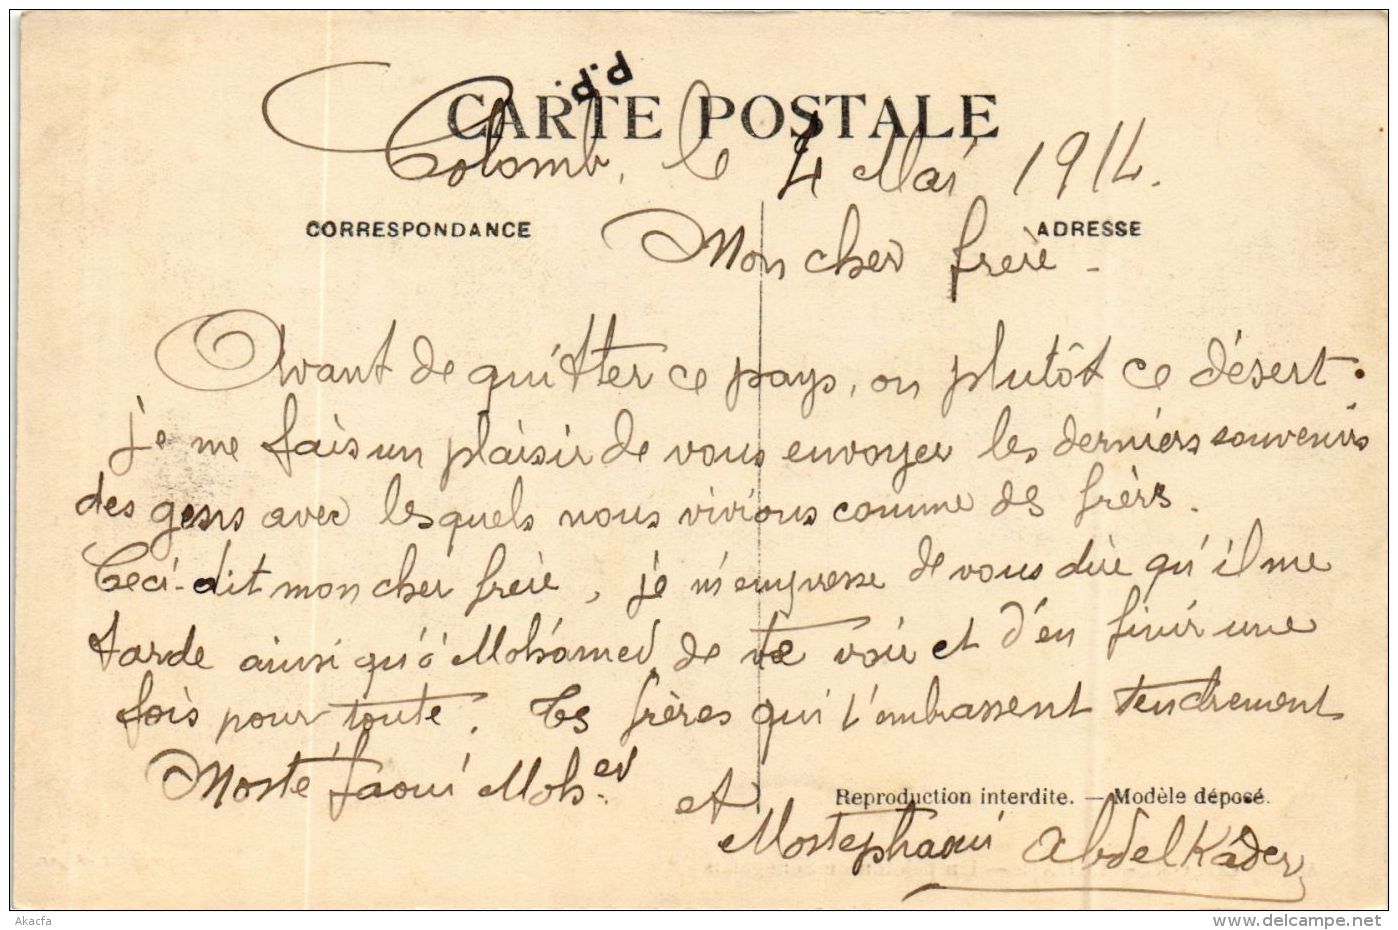 P.P.
CARTE POSTALE
Colomb, le 4 Mai 1914.
CORRESPONDANCE
ADRESSE
Mon cher frère -
Avant de quitter ce pays, ou plutôt ce désert.
je me fais un plaisir de vous envoyer les derniers souvenirs
des gens avec lesquels nous vivions comme des frères.
Ceci-dit mon cher frère, je m'empresse de vous dire qu'il me
tarde ainsi qu'à Mohamed de te voir et d'en finir une
fois pour toute. Tes frères qui t'embrassent tendrement
Mostéfaoui Moh.ed et
Reproduction interdite. — Modèle déposé.
Mostephaoui Abdelkader
Akacfa
www.delcampe.net